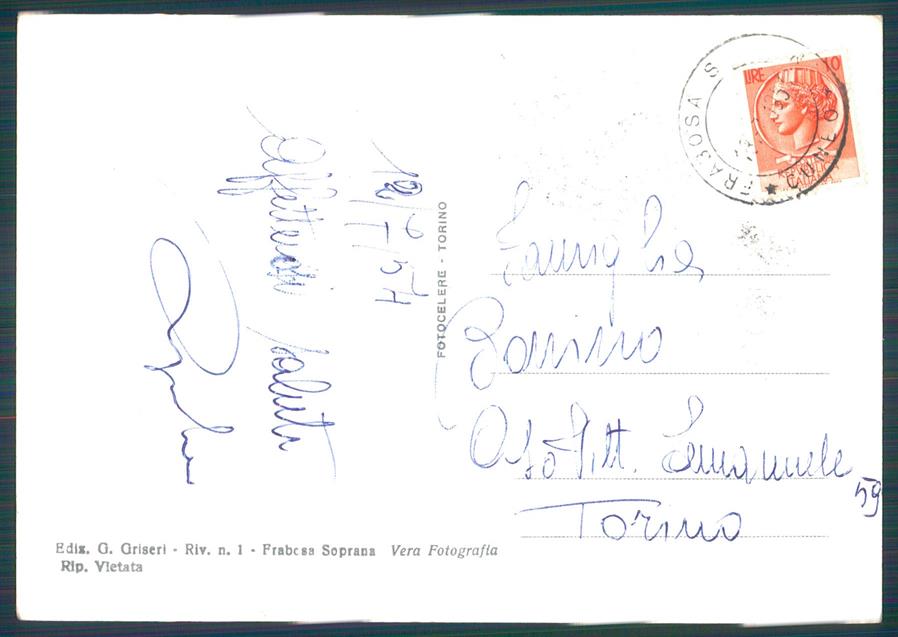 LIRE 10
FRABOSA S
CUNEO
12/I/57
Affettuosi saluti
FOTOCELERE - TORINO
Famiglia
Bonino
C.so Vitt. Emanuele
59
Torino
Ediz. G. Griseri - Riv. n. 1 - Frabosa Soprana Vera Fotografia
Rip. Vietata